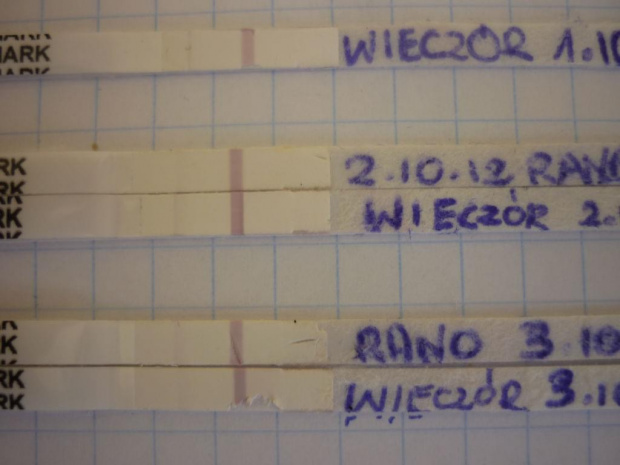 MARK
WIECZÓR 1.10
2.10.12 RANO
WIECZÓR 2.
RANO 3.10
WIECZÓR 3.10